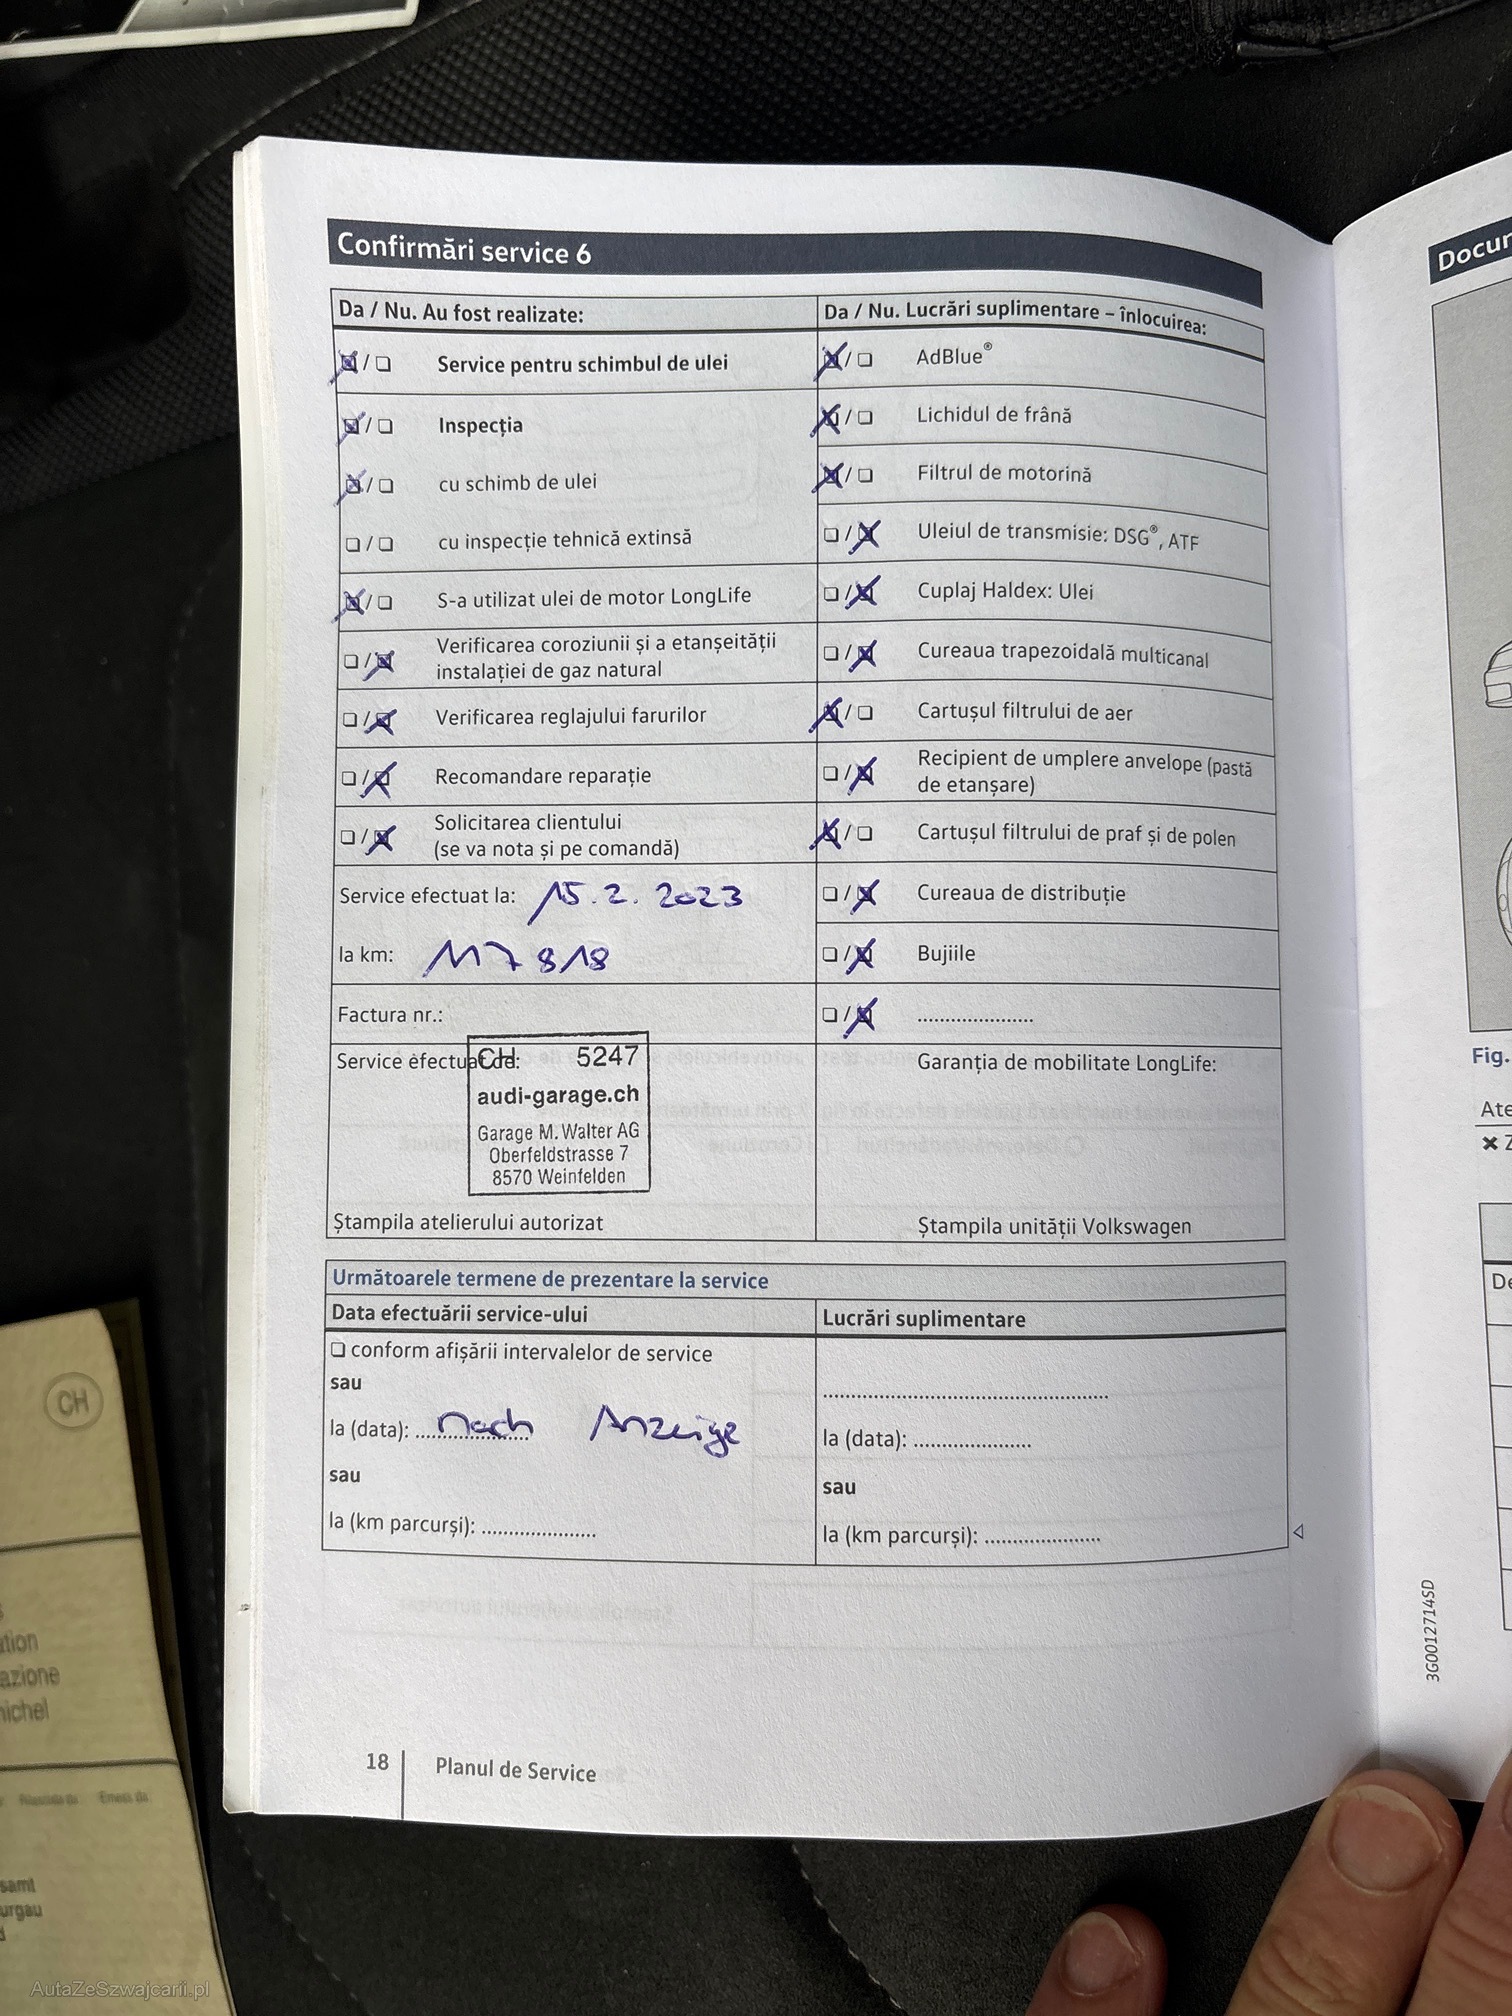 Confirmări service 6
Da / Nu. Au fost realizate:
☒ / ☐ Service pentru schimbul de ulei
☒ / ☐ Inspecția
☒ / ☐ cu schimb de ulei
☐ / ☐ cu inspecție tehnică extinsă
☒ / ☐ S-a utilizat ulei de motor LongLife
☐ / ☒ Verificarea coroziunii și a etanșeității
instalației de gaz natural
☐ / ☒ Verificarea reglajului farurilor
☐ / ☒ Recomandare reparație
☐ / ☒ Solicitarea clientului
(se va nota și pe comandă)
Service efectuat la: 15.2.2023
la km: 117 818
Factura nr.:
Service efectuat de:
CH 5247
audi-garage.ch
Garage M. Walter AG
Oberfeldstrasse 7
8570 Weinfelden
Ștampila atelierului autorizat
Da / Nu. Lucrări suplimentare – înlocuirea:
☒ / ☐ AdBlue®
☒ / ☐ Lichidul de frână
☒ / ☐ Filtrul de motorină
☐ / ☒ Uleiul de transmisie: DSG®, ATF
☐ / ☒ Cuplaj Haldex: Ulei
☐ / ☒ Cureaua trapezoidală multicanal
☒ / ☐ Cartușul filtrului de aer
☐ / ☒ Recipient de umplere anvelope (pastă
de etanșare)
☒ / ☐ Cartușul filtrului de praf și de polen
☐ / ☒ Cureaua de distribuție
☐ / ☒ Bujiile
☐ / ☒ ......................
Garanția de mobilitate LongLife:
Ștampila unității Volkswagen
Următoarele termene de prezentare la service
Data efectuării service-ului
☐ conform afișării intervalelor de service
sau
la (data): nach Anzeige
sau
la (km parcurși): ......................
Lucrări suplimentare
......................................................
la (data): ......................
sau
la (km parcurși): ......................
18 Planul de Service
3G0012714SD
Docu
Fig.
Ate
CH
ation
azione
nichel
samt
urgau
AutaZeSzwajcarii.pl